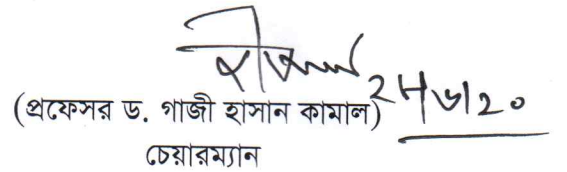 (প্রফেসর ড. গাজী হাসান কামাল)
চেয়ারম্যান